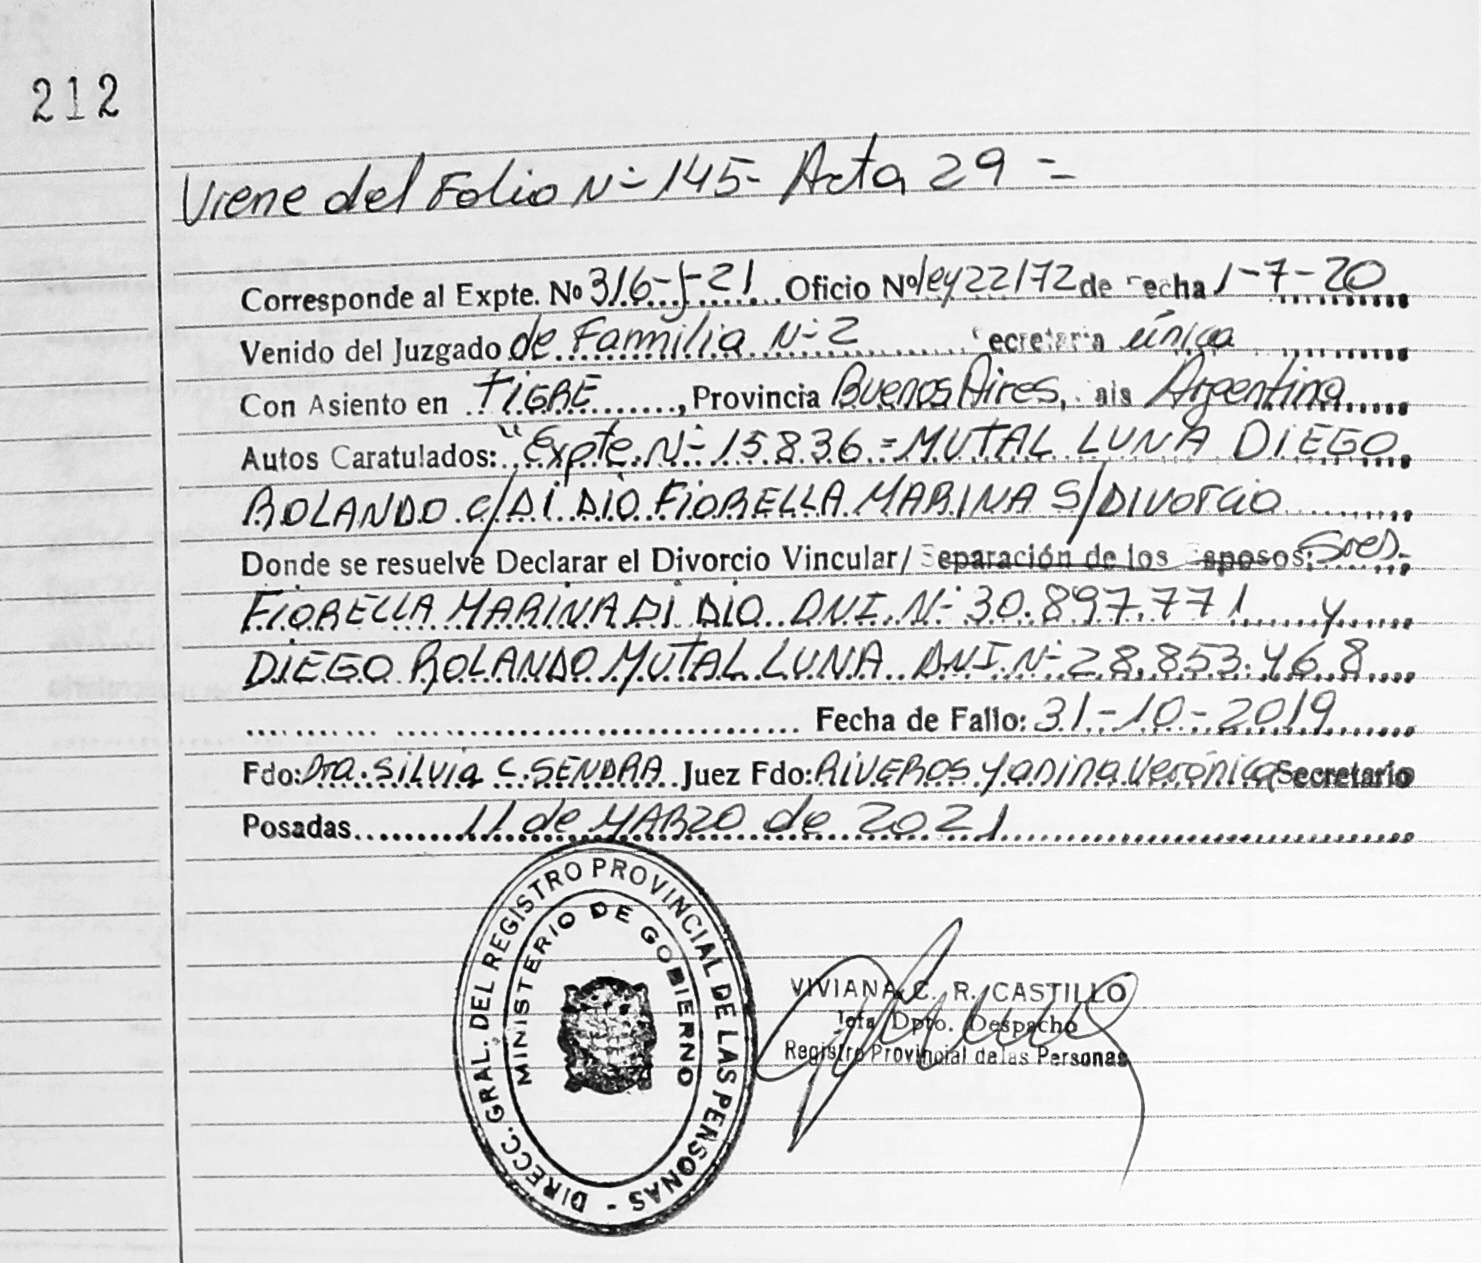 212
Viene del Folio Nº 145- Acta 29 =
Corresponde al Expte. Nº 316-J-21 Oficio Nº ley 22172 de Fecha 1-7-20
Venido del Juzgado de Familia Nº 2 Secretaria única
Con Asiento en TIGRE, Provincia Buenos Aires, Pais Argentina
Autos Caratulados: "Expte. Nº 15.836 = MUTAL LUNA DIEGO
ROLANDO c/ DI DIO FIORELLA MARINA S/ DIVORCIO
Donde se resuelve Declarar el Divorcio Vincular/ Separación de los Esposos: Sres.
FIORELLA MARINA DI DIO DNI. Nº 30.897.771 y
DIEGO ROLANDO MUTAL LUNA DNI. Nº 28.853.468
Fecha de Fallo: 31-10-2019
Fdo: Dra. SILVIA C. SENDRA Juez Fdo: RIVEROS Yanina Verónica Secretario
Posadas 11 de MARZO de 2021
DIRECC. GRAL. DEL REGISTRO PROVINCIAL DE LAS PENSONAS -
MINISTERIO DE GOBIERNO
VIVIANA C. R. CASTILLO
Jefa Dpto. Despacho
Registro Provincial de las Personas